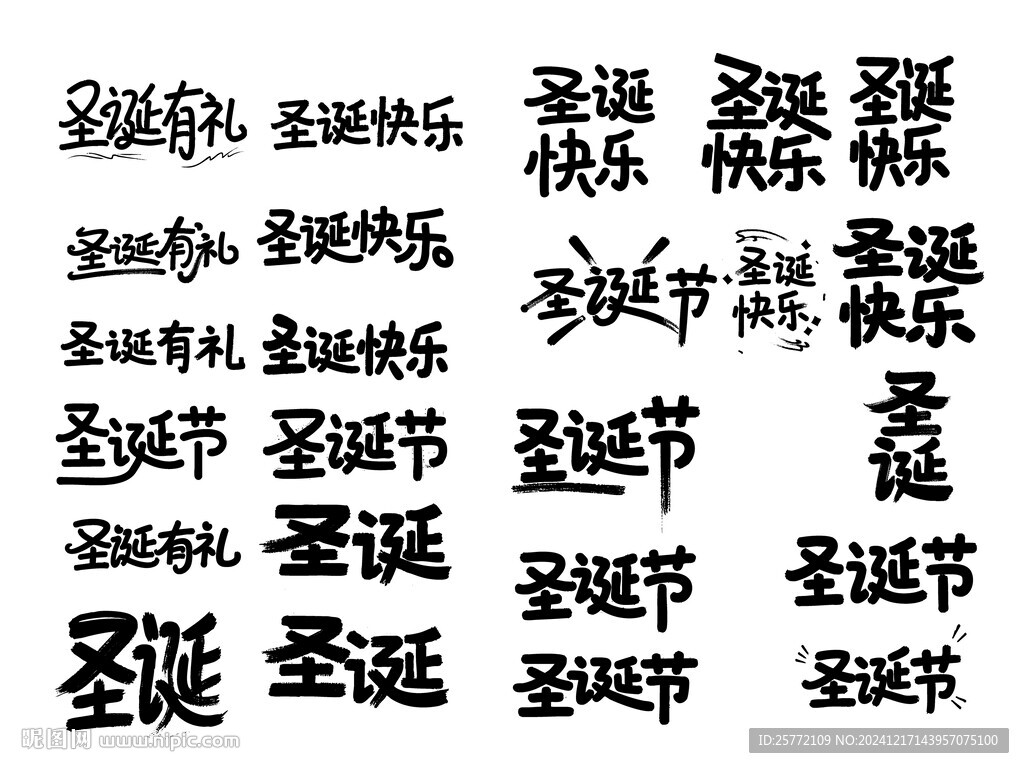 圣诞有礼
圣诞快乐
圣诞有礼
圣诞快乐
圣诞有礼
圣诞快乐
圣诞节
圣诞节
圣诞有礼
圣诞
圣诞
圣诞
圣诞
快乐
圣诞
快乐
圣诞
快乐
圣诞节
圣诞
快乐
圣诞
快乐
圣诞节
圣
诞
圣诞节
圣诞节
圣诞节
圣诞节
昵图网 www.nipic.com
ID:25772109 NO:20241217143957075100